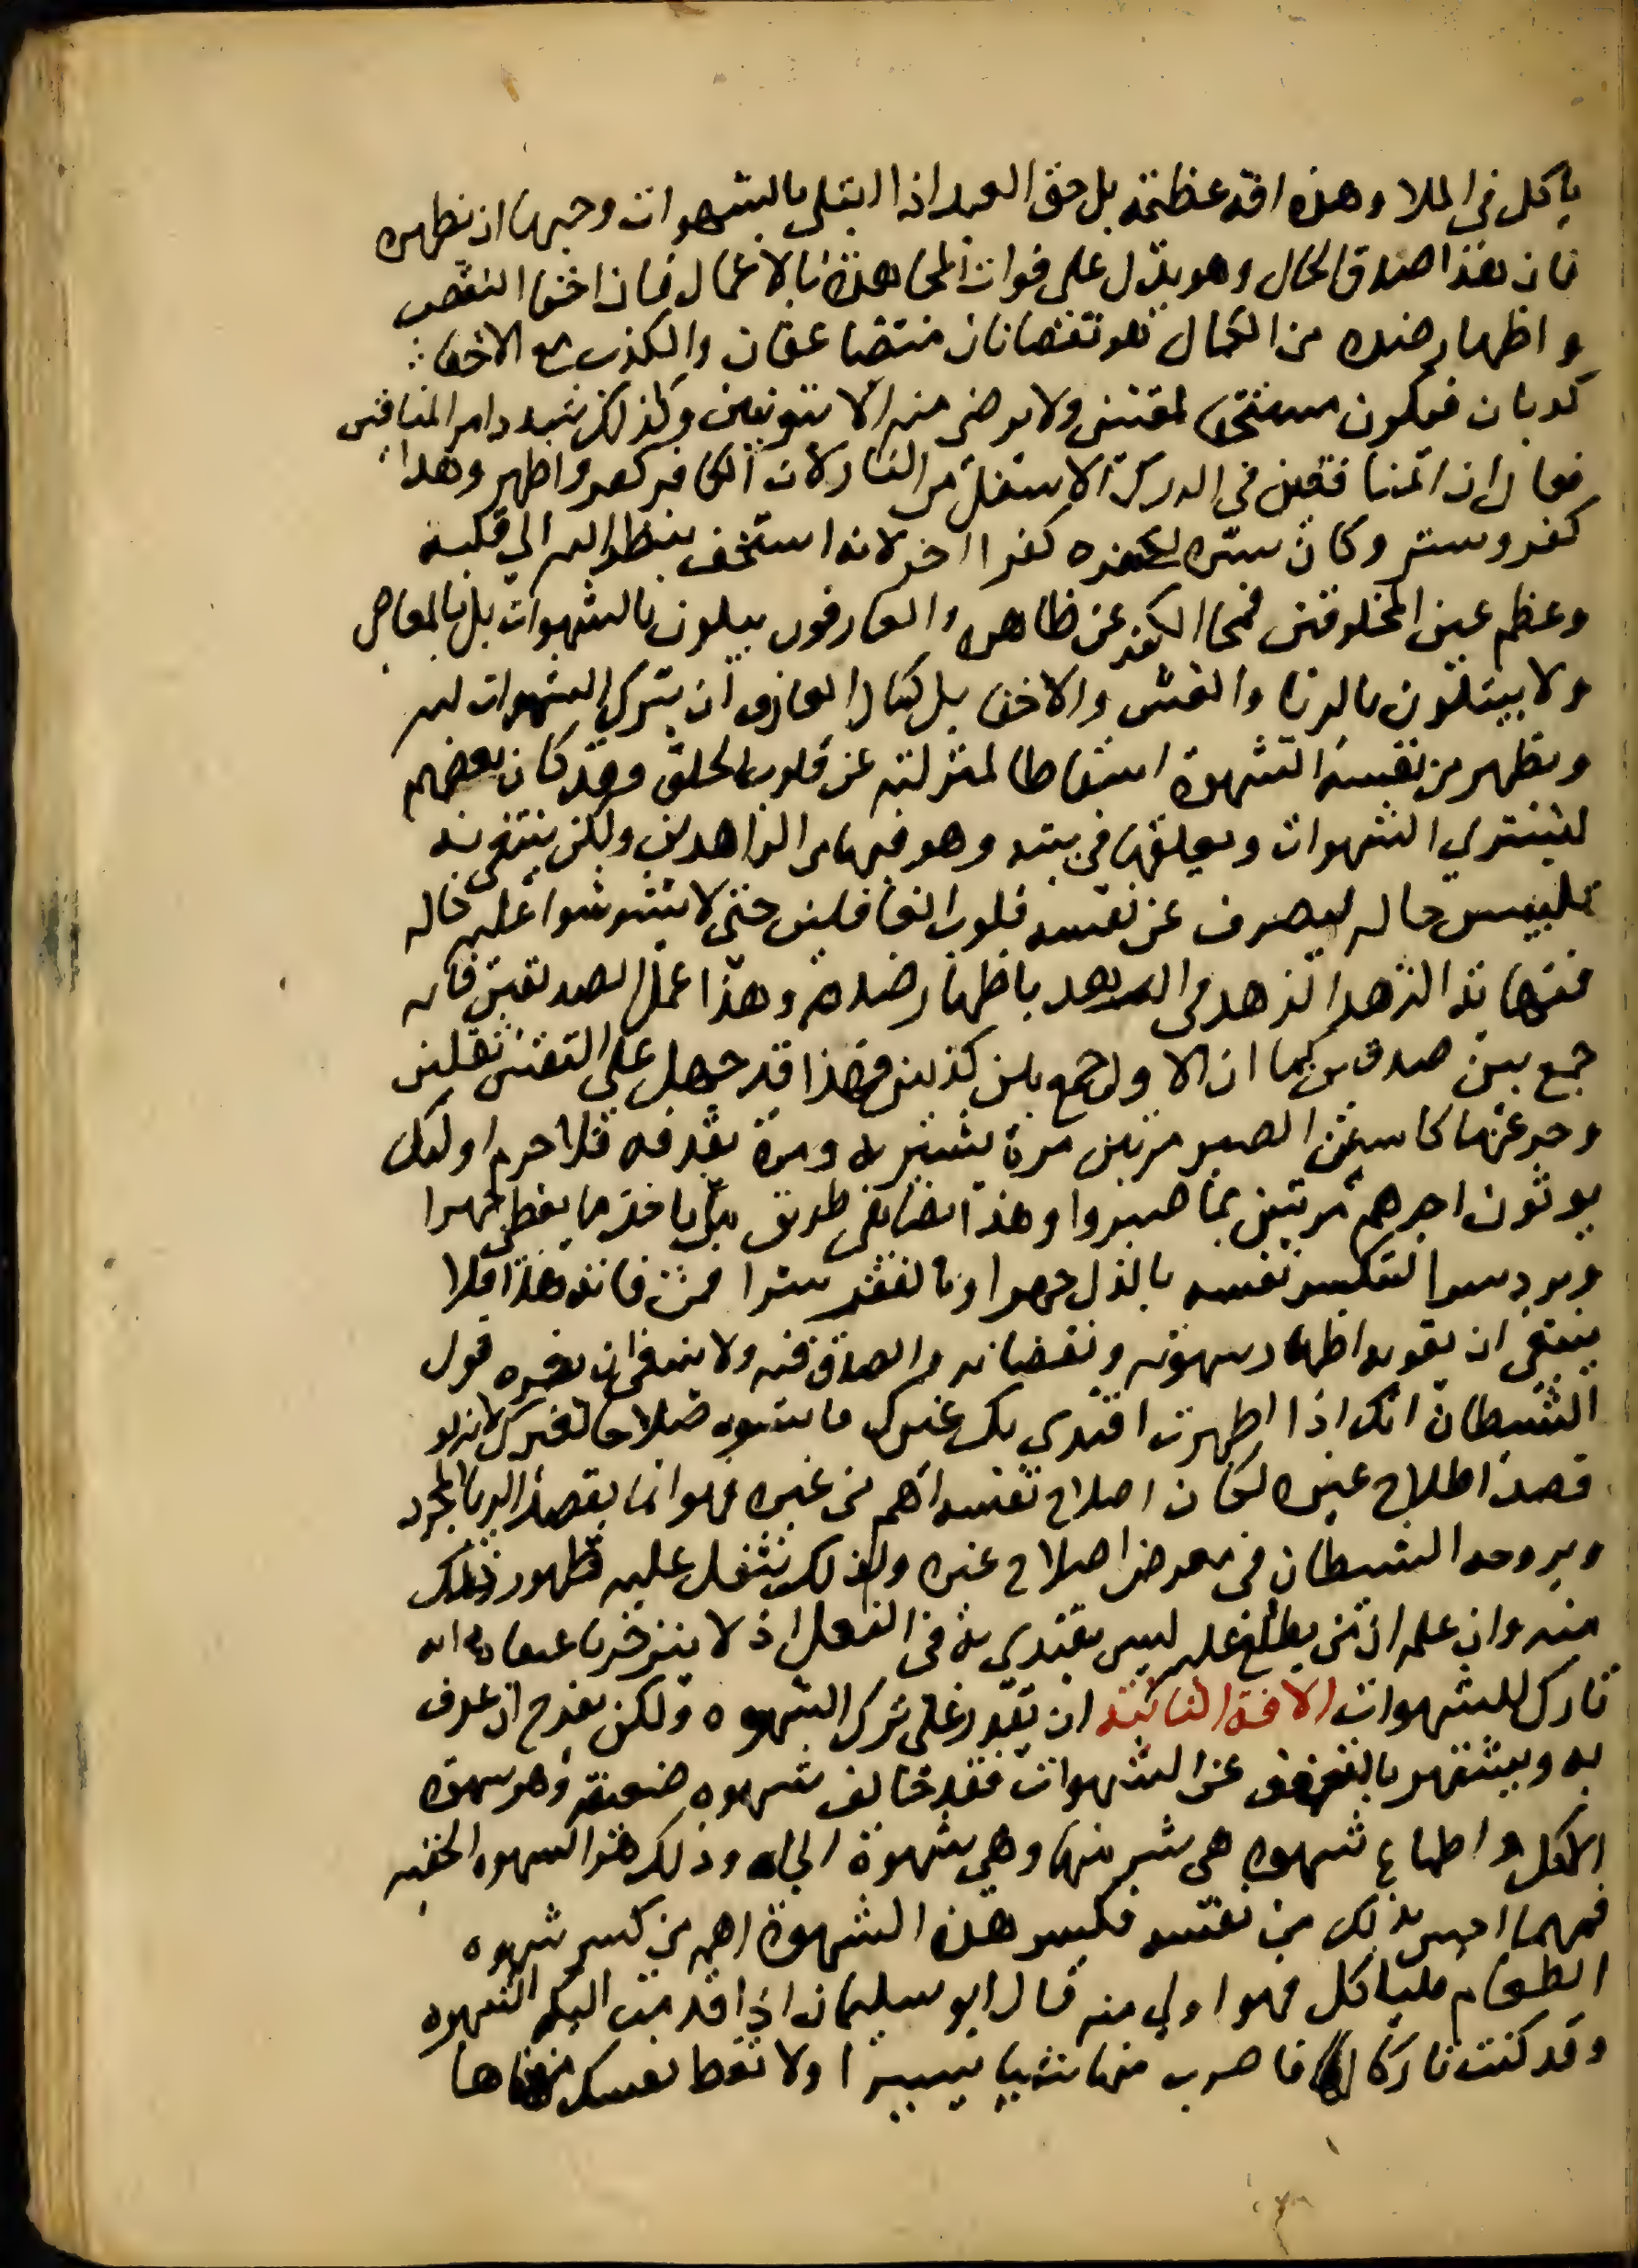 ياكل في الملا وهذه افة عظيمة بل حق العبد اذا ابتلى بالشهوات وحبها ان يظهره
فان هذا صدق الحال وهو يدل على فوات المجاهدة بالاعمال فان اخفا النقص
واظهار ضده من الكمال هو نقصانان متضاعفان والكذب مع الاخفا
كذبان فيكون مستحقا لمقتين ولا يرضى منه الا بتوبتين ولذلك شدد امر المنافقين
فقال ان المنافقين في الدرك الاسفل من النار لان الكافر كفر واظهر وهذا
كفر وستر وكان ستره لكفره كفرا اخر لانه استخف بنظر الله الى قلبه
وعظم عين المخلوقين فمحا الكفر عن ظاهره والعارفون يبتلون بالشهوات بل بالمعاصي
ولا يبتلون بالريا والغش والاخفا بل كمال العارف ان يترك الشهوات لله
ويظهر من نفسه الشهوة اسقاطا لمنزلته عن قلوب الخلق وقد كان بعضهم
يشتري الشهوات ويعلقها في بيته وهو فيها من الزاهدين ولكن يبتغي به
تلبيس حاله ليصرف عن نفسه قلوب الغافلين حتى لا يشوشوا عليه حاله
فنهاية الزهد الزهد في الزهد باظهار ضده وهذا عمل الصديقين فانه
جمع بين صدقين كما ان الاول جمع بين كذبين وهذا قد حمل على النفس ثقلين
وجرعها كاس الصبر مرتين مرة بشربه ومرة بقذفه فلا جرم اوليك
يوتون اجرهم مرتين بما صبروا وهذا يضاهي طريق من ياخذ ما يعطى جهرا
ويرد سرا لتكسر نفسه بالذل جهرا وبالفقر سرا فمن فاته هذا فلا
ينبغي ان يفوته اظهار شهوته ونقصانه والصدق فيه ولا ينبغي ان يغره قول
الشيطان انك اذا اظهرت اقتدى بك غيرك فاستره صلاحا لغيرك لانه لو
قصد اصلاح غيره لكان اصلاح نفسه اهم من غيره فهو انما يقصد الريا المجرد
ويروجه الشيطان في معرض اصلاح غيره ولذلك يثقل عليه ظهور ذلك
منه وان علم ان من يطلع عليه ليس يقتدي به في الفعل اذ لا ينزجر باعتقاده انه
تارك للشهوات الافة الثانية ان يقدر على ترك الشهوة ولكن يفرح ان يعرف
به ويشتهر بالتعفف عن الشهوات فقد خالف شهوة ضعيفة وهو شهوة
الاكل واطاع شهوة هي شر منها وهي شهوة الجاه وذلك هو الشهوة الخفية
فمهما احس بذلك من نفسه فكسر هذه الشهوة اهم من كسر شهوة
الطعام فلياكل فهو اولى منه قال ابو سليمان اذا قدمت اليكم الشهوة
وقد كنت تاركا لها فاصب منها شيا يسيرا ولا تعط نفسك مناها